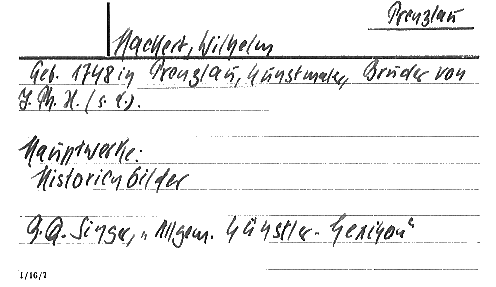 Prenzlau
Hackert, Wilhelm
Geb. 1748 in Prenzlau, Kunstmaler, Bruder von
J. Ph. H. (s. d.).
Hauptwerke:
Historienbilder
Singer, „Allgem. Künstler-Lexikon“
1/16/7